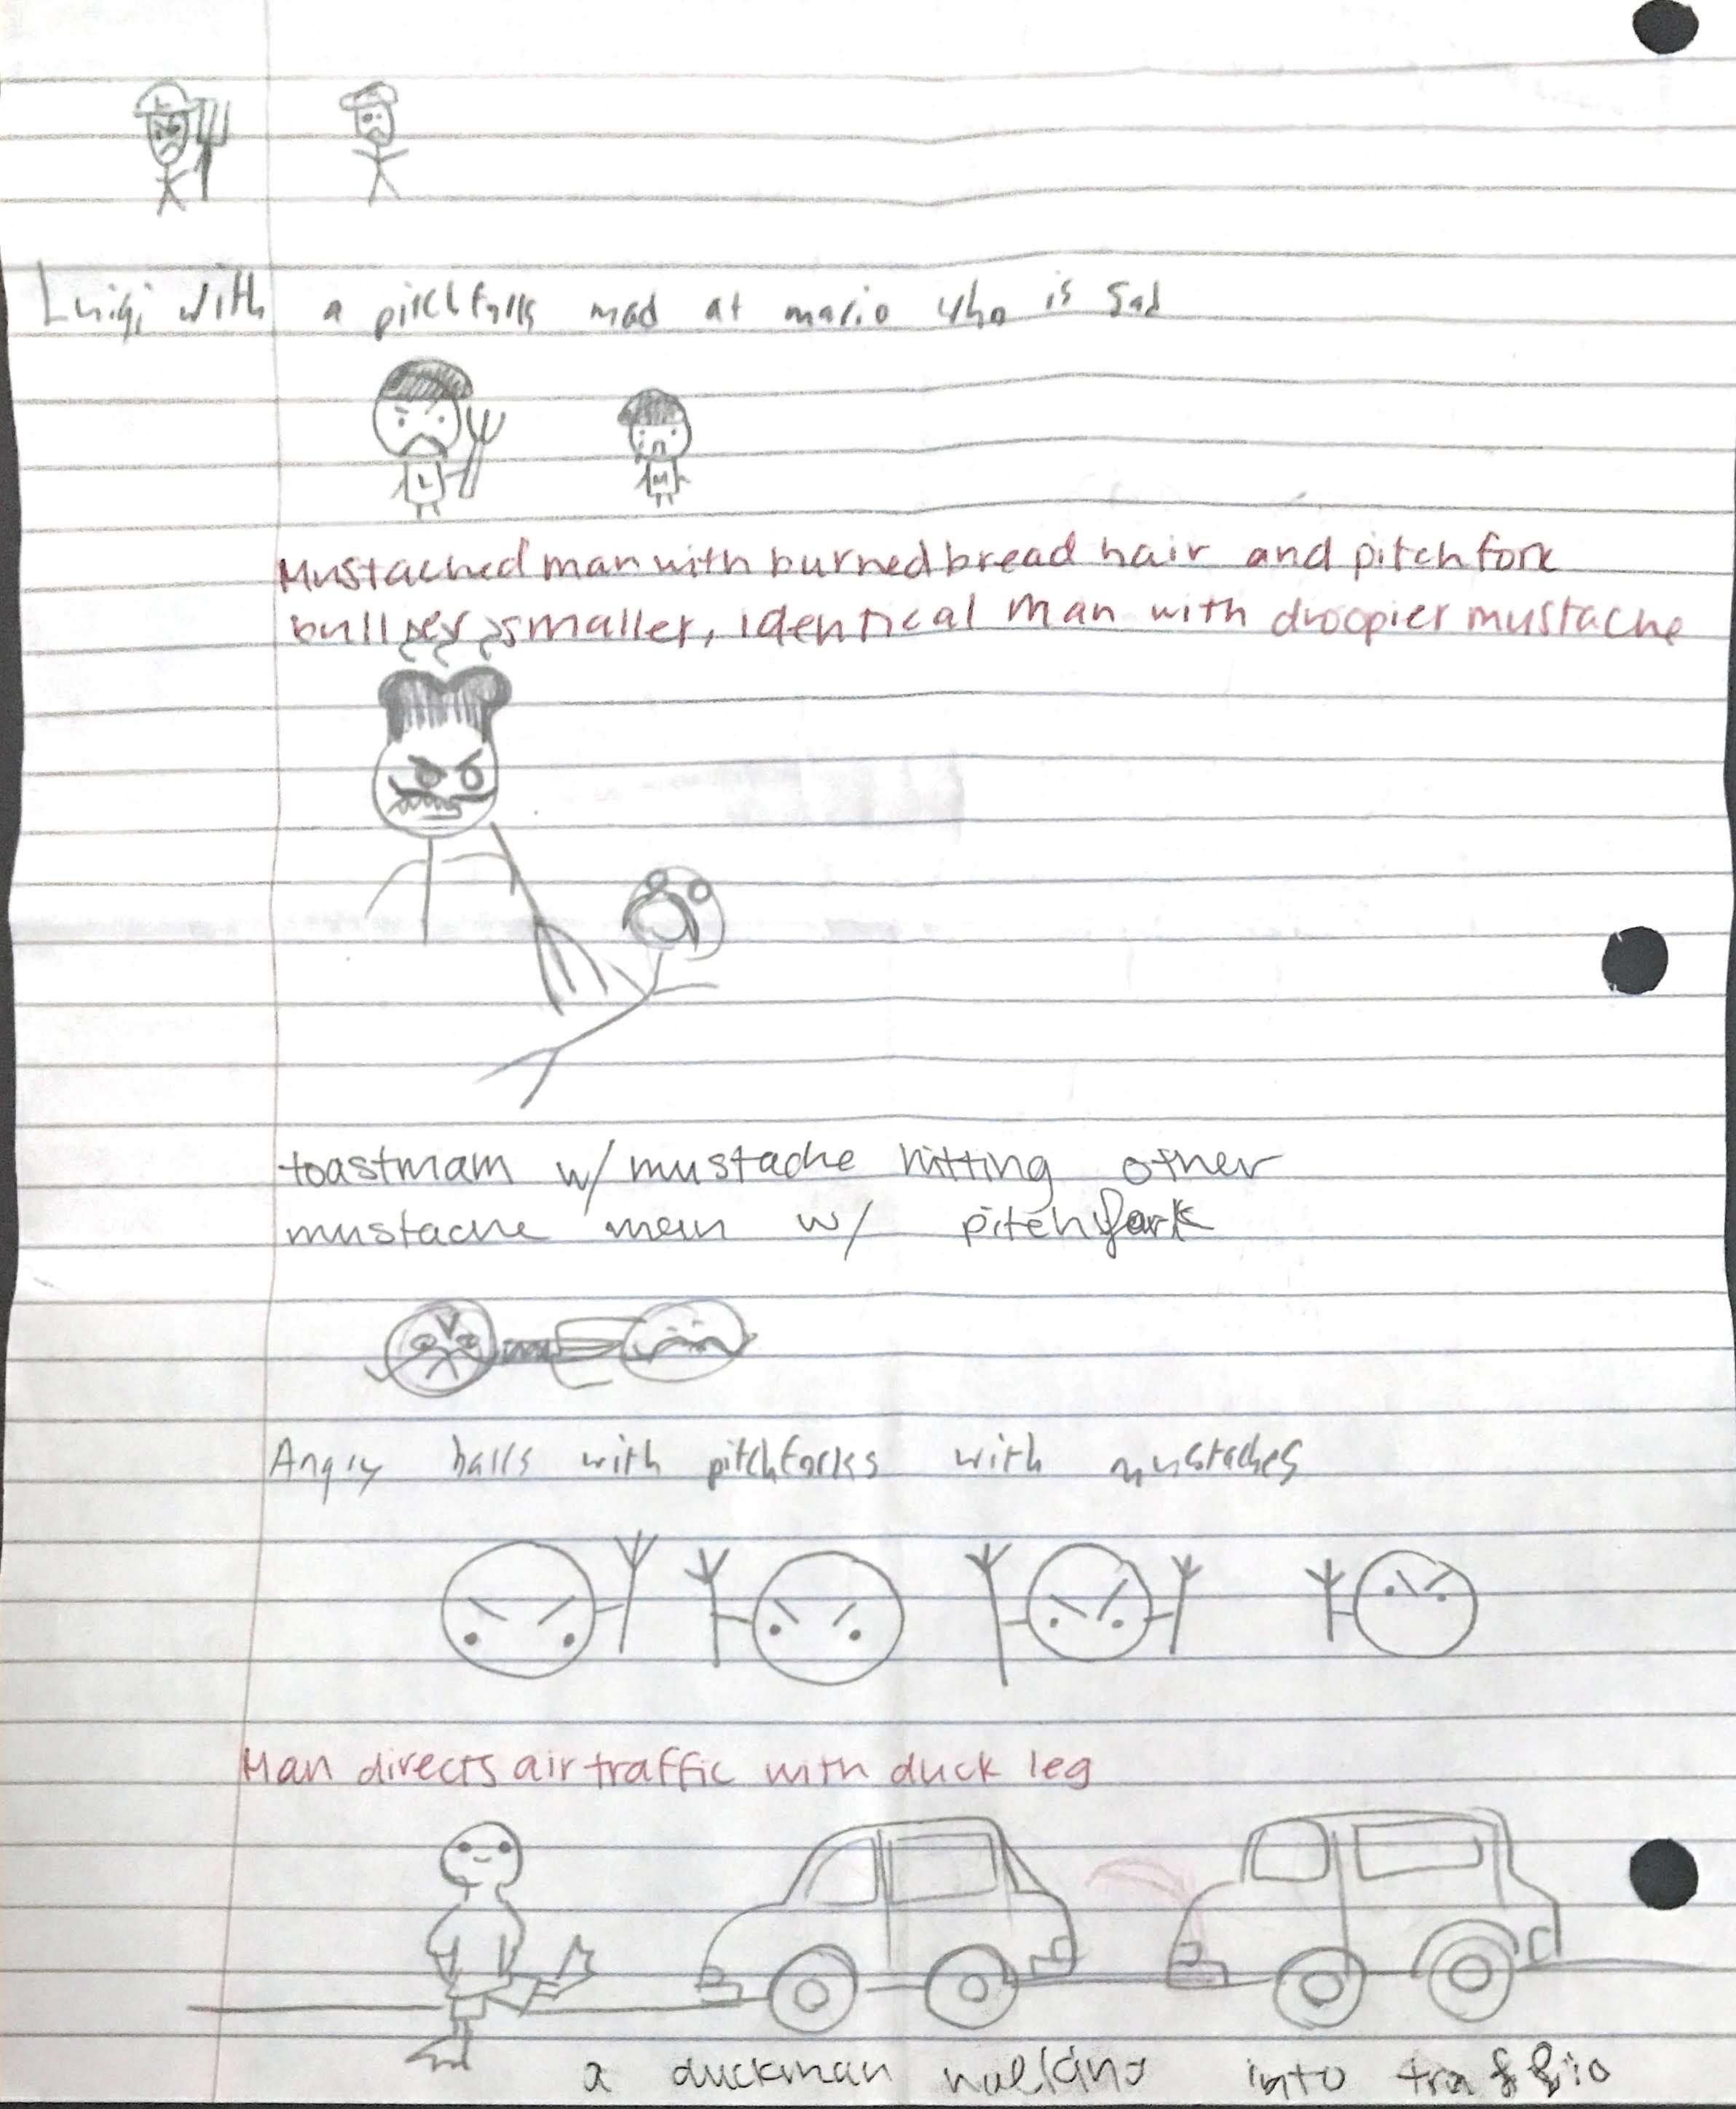 L
Luigi with a pitchfork mad at mario who is sad
L M
Mustached man with burned bread hair and pitchfork
bullies smaller, identical man with droopier mustache
toastman w/ mustache hitting other
mustache man w/ pitchfork
Angry balls with pitchforks with mustaches
Man directs air traffic with duck leg
a duckman walking into traffic